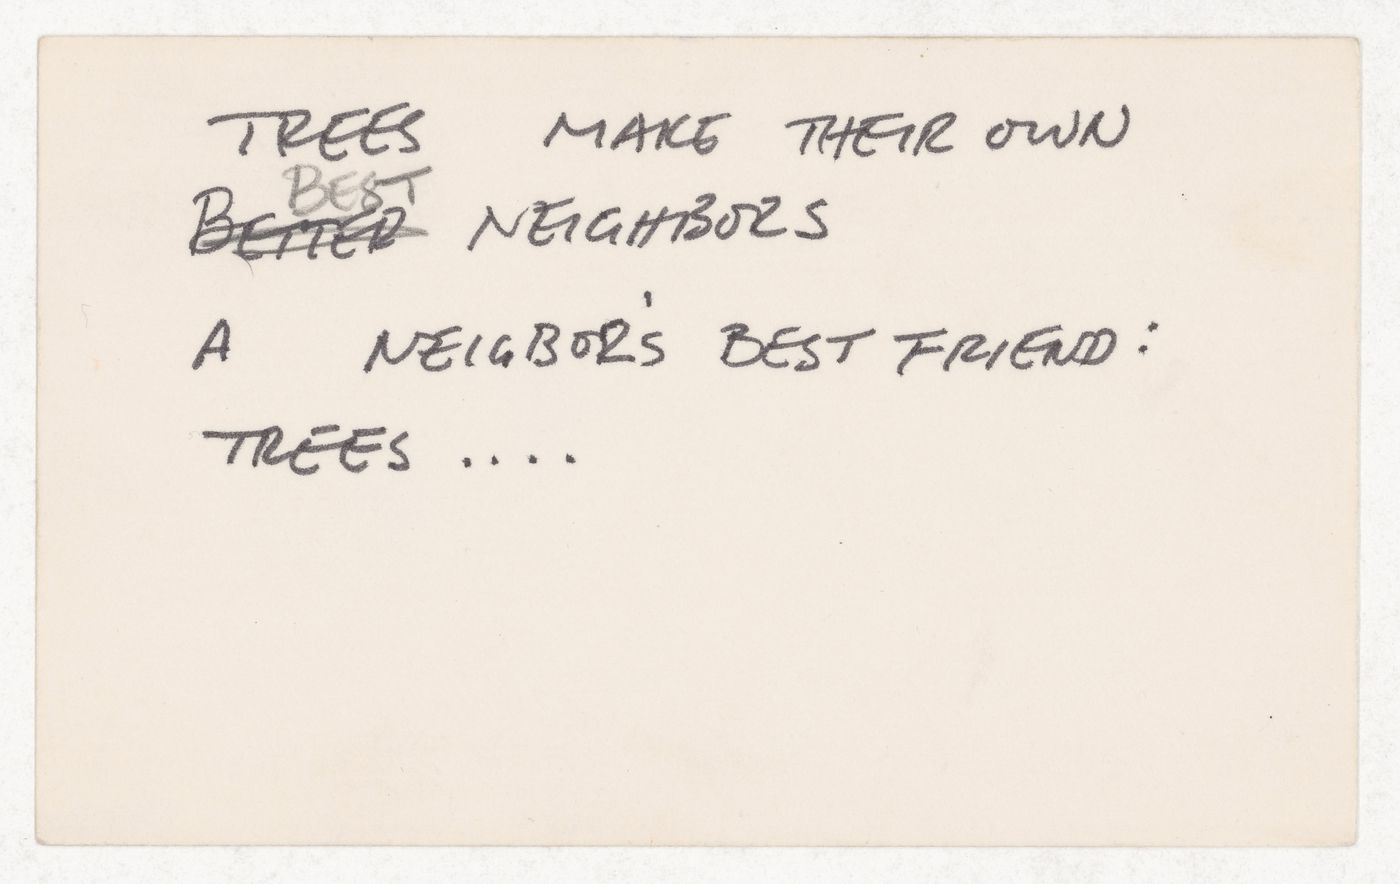 TREES MAKE THEIR OWN
BEST
BETTER NEIGHBORS
A NEIGBOR'S BEST FRIEND:
TREES ....